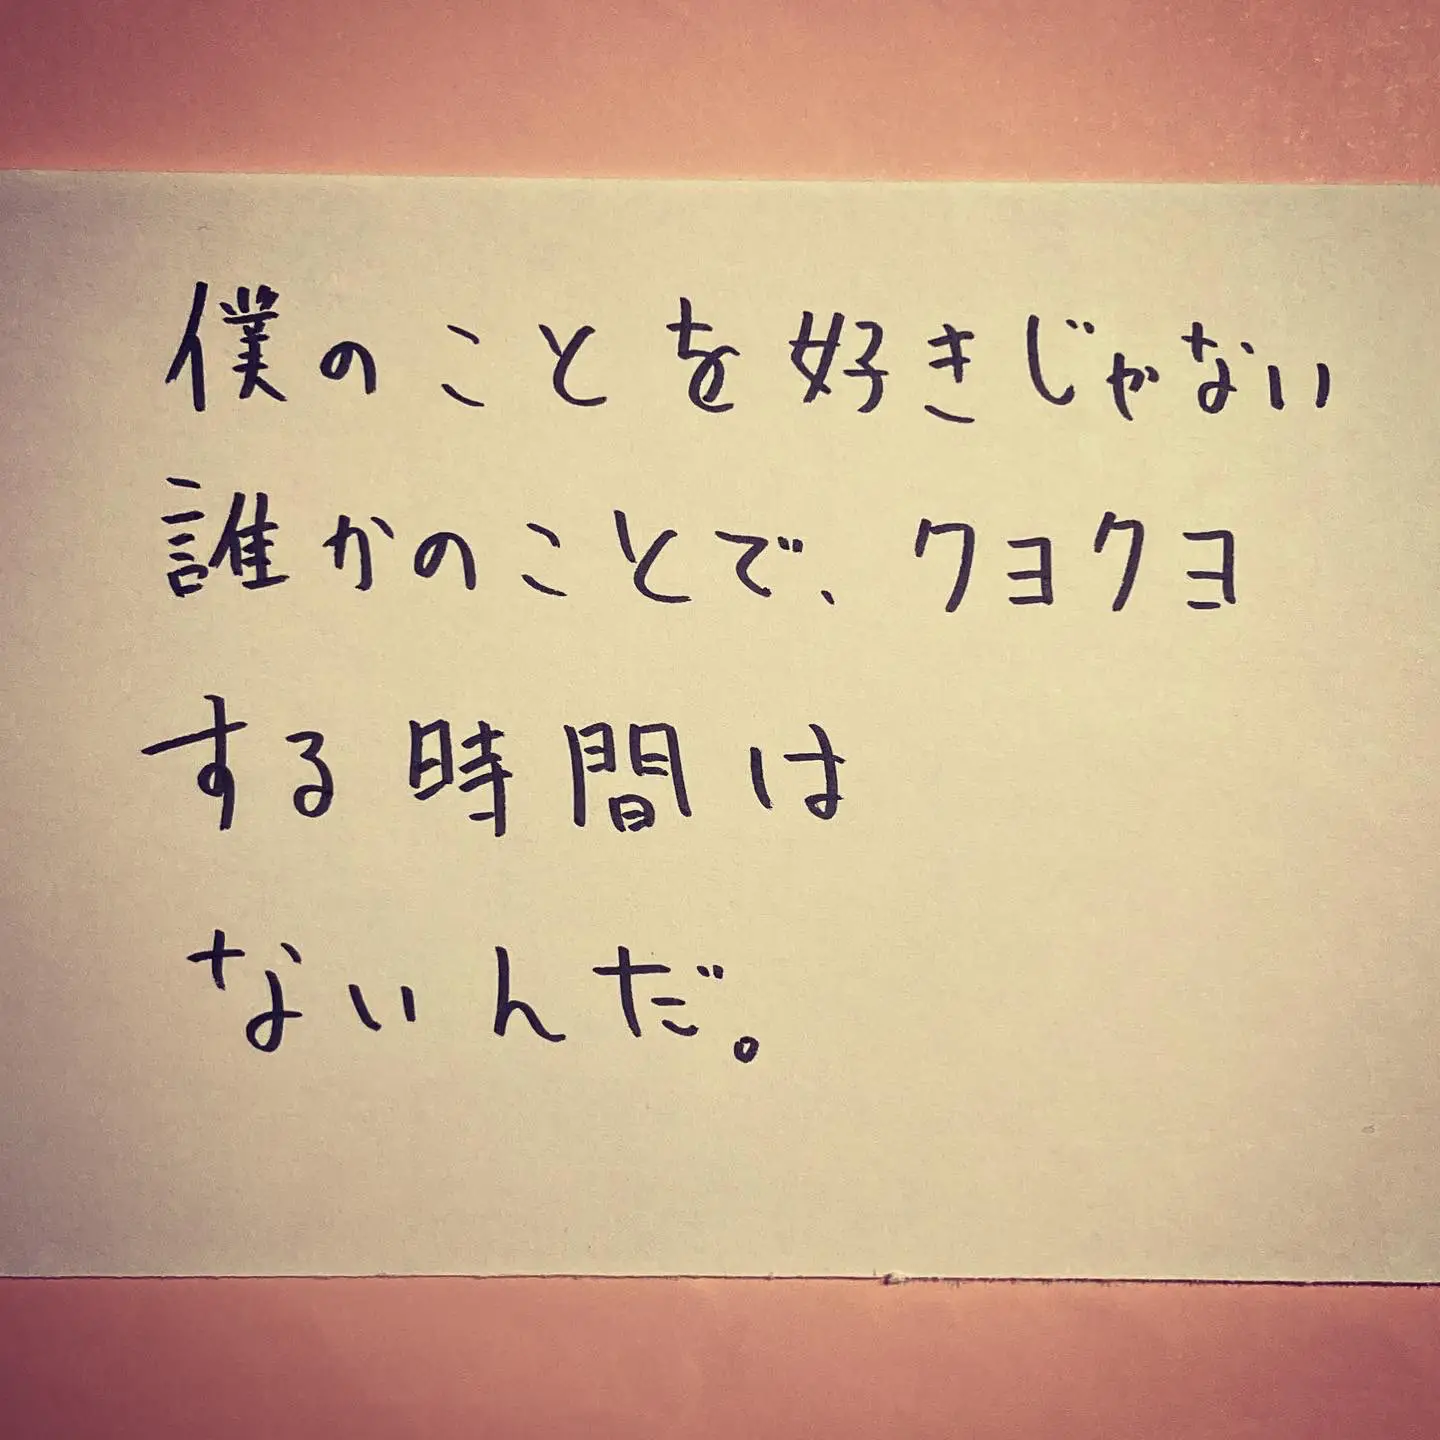 僕のことを好きじゃない
誰かのことで、クヨクヨ
する時間は
ないんだ。